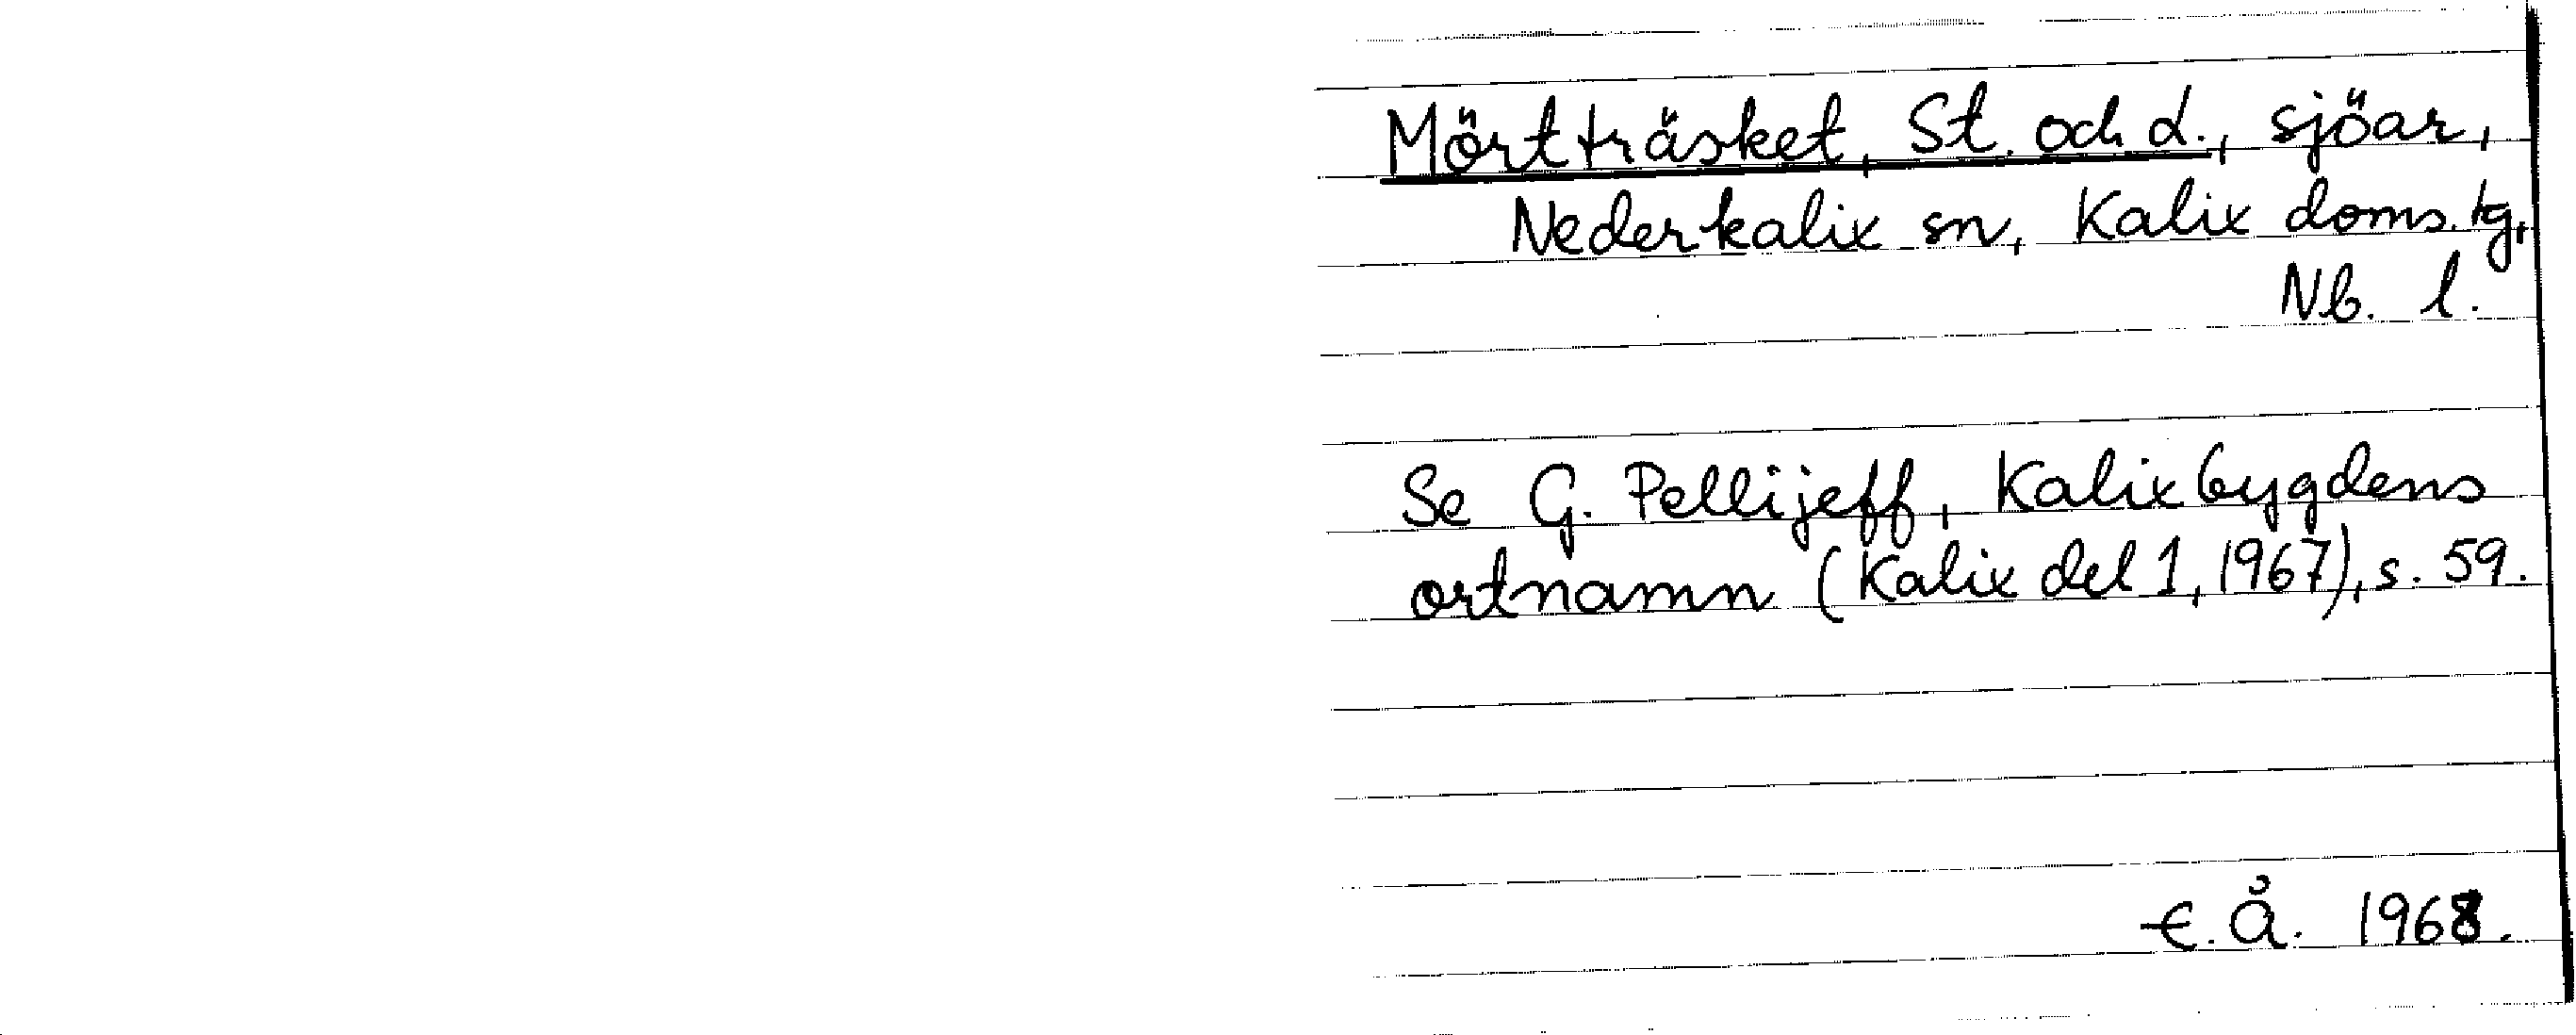 Mörtträsket, St. och L., sjöar,
Nederkalix sn, Kalix doms. tg,
Nb. l.
Se G. Pellijeff, Kalixbygdens
ortnamn (Kalix del 1, 1967), s. 59.
E. Å. 1968.